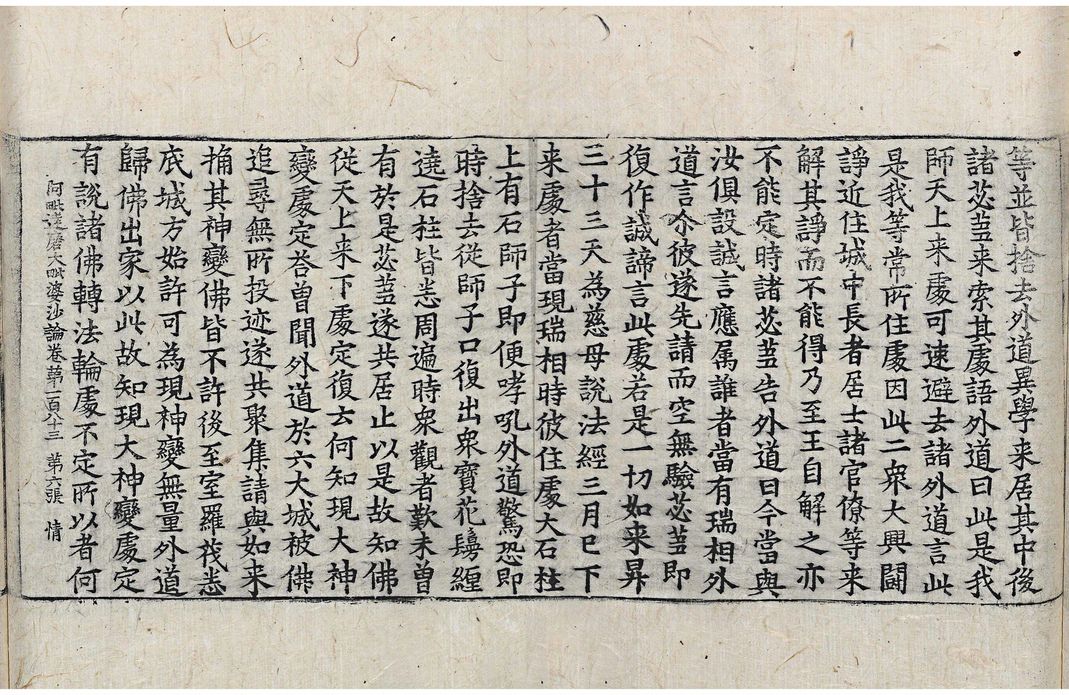 等並皆捨去外道異學来居其中後
諸苾芻来索其處語外道曰此是我
師天上来處可速避去諸外道言此
是我等常所住處因此二衆大興鬪
諍近住城中長者居士諸官僚等来
解其諍而不能得乃至王自解之亦
不能定時諸苾芻告外道曰今當與
汝俱設誠言應属誰者當有瑞相外
道言尒彼遂先請而空無驗苾芻即
復作誠諦言此處若是一切如来昇
三十三天為慈母說法經三月已下
来處者當現瑞相時彼住處大石柱
上有石師子即便哮吼外道驚恐即
時捨去從師子口復出衆寶花鬘纏
遶石柱皆悉周遍時衆觀者歎未曾
有於是苾芻遂共居止以是故知佛
從天上来下處定復云何知現大神
變處定荅曾聞外道於六大城被佛
追尋無所投迹遂共聚集請與如来
捔其神變佛皆不許後至室羅筏悉
底城方始許可為現神變無量外道
歸佛出家以此故知現大神變處定
有說諸佛轉法輪處不定所以者何
阿毗達磨大毗婆沙論卷第一百八十三 第六張 情